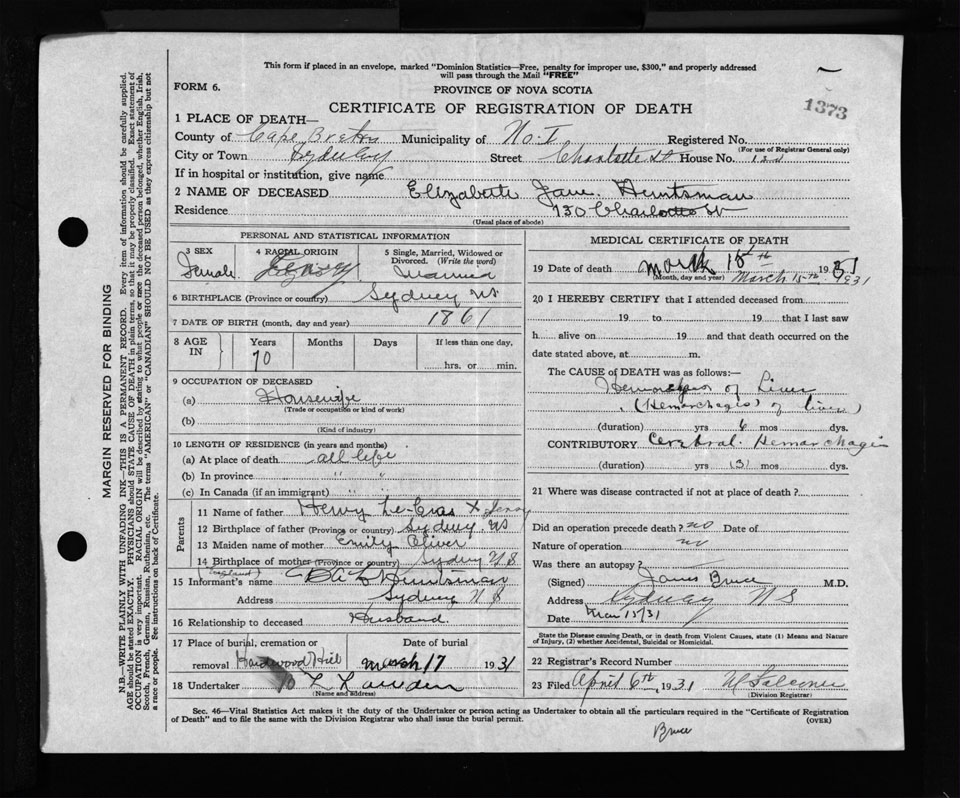 This form if placed in an envelope, marked "Dominion Statistics—Free, penalty for improper use, $300," and properly addressed
will pass through the Mail "FREE"
FORM 6.
PROVINCE OF NOVA SCOTIA
1373
CERTIFICATE OF REGISTRATION OF DEATH
1 PLACE OF DEATH—
County of Cape Breton Municipality of No. I Registered No.
(For use of Registrar General only)
City or Town Sydney Street Charlotte St House No.
If in hospital or institution, give name
2 NAME OF DECEASED Elizabeth Jane Huntsman
Residence 130 Charlotte St
(Usual place of abode)
PERSONAL AND STATISTICAL INFORMATION
3 SEX 4 RACIAL ORIGIN 5 Single, Married, Widowed or
Divorced. (Write the word)
Female Jersey Married
6 BIRTHPLACE (Province or country) Sydney NS
7 DATE OF BIRTH (month, day and year) 1861
8 AGE IN Years Months Days If less than one day,
70
hrs. or min.
9 OCCUPATION OF DECEASED
(a) Housewife
(Trade or occupation or kind of work)
(b)
(Kind of industry)
10 LENGTH OF RESIDENCE (in years and months)
(a) At place of death all life
(b) In province " "
(c) In Canada (if an immigrant) " "
Parents
11 Name of father Henry Le-Cras x Jersey
12 Birthplace of father (Province or country) Sydney NS
13 Maiden name of mother Emily Oliver
14 Birthplace of mother (Province or country) Sydney N S
(England)
15 Informant's name Huntsman
Address Sydney N S
16 Relationship to deceased Husband
17 Place of burial, cremation or Date of burial
removal Hardwood Hill March 17 1931
18 Undertaker
(Name and address)
MEDICAL CERTIFICATE OF DEATH
19 Date of death March 15th 1931
(Month, day and year) March 15th 1931
20 I HEREBY CERTIFY that I attended deceased from
19 to 19 that I last saw
h alive on 19 and that death occurred on
the date stated above, at m.
The CAUSE OF DEATH was as follows:—
of Liver
(Hemorrhages) of liver)
(duration) yrs 6 mos dys.
CONTRIBUTORY Cerebral Hemorrhages
(duration) yrs (3) mos dys.
21 Where was disease contracted if not at place of death?
Did an operation precede death? no Date of
Nature of operation no
Was there an autopsy?
(Signed) James Bruce M.D.
Address Sydney N S
Date Mar 15/31
State the Disease causing Death, or in death from Violent Causes, state (1) Means and Nature
of Injury, (2) whether Accidental, Suicidal or Homicidal.
22 Registrar's Record Number
23 Filed April 6th, 1931
(Division Registrar)
Sec. 46—Vital Statistics Act makes it the duty of the Undertaker or person acting as Undertaker to obtain all the particulars required in the "Certificate of Registration
of Death" and to file the same with the Division Registrar who shall issue the burial permit. (OVER)
Bruce
MARGIN RESERVED FOR BINDING
N.B.—WRITE PLAINLY WITH UNFADING INK—THIS IS A PERMANENT RECORD. Every item of information should be carefully supplied.
AGE should be stated EXACTLY. PHYSICIANS should STATE CAUSE OF DEATH in plain terms, so that it may be properly classified. Exact statement of
OCCUPATION is very important. RACIAL ORIGIN will be described by stating to what people or race the deceased person belonged, whether English, Irish,
Scotch, French, German, Russian, Ruthenian, etc. The terms "AMERICAN" or "CANADIAN" SHOULD NOT BE USED as they express citizenship but not
a race or people. See instructions on back of Certificate.